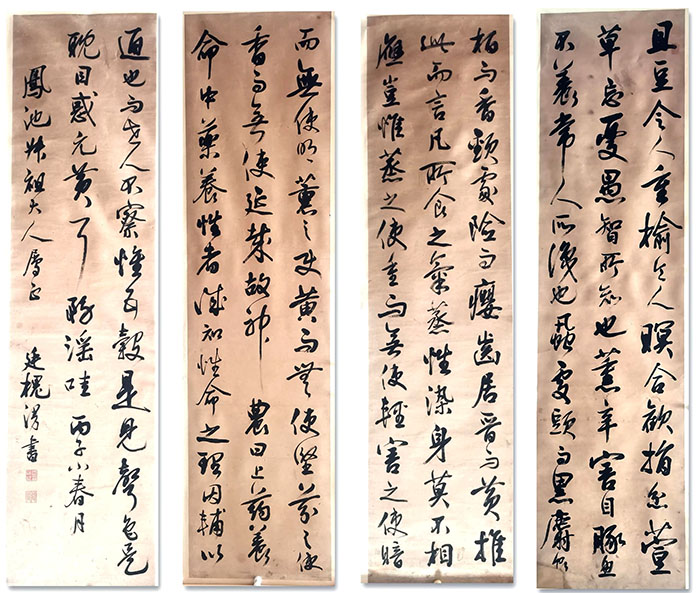 且豆令人重榆令人瞑合歡捐忿萱
草忘憂愚智所知也薰辛害目豚魚
不養常人所識也蝨處頭而黑麝食
柏而香頸處險而癭齒居晉而黃推
此而言凡所食之氣蒸性染身莫不相
應豈惟蒸之使重而無使輕害之使暗
而無使明薰之使黃而無使堅芬之使
香而無使延哉故神農曰上藥養
命中藥養性者誠知性命之理因輔以
通也而世人不察惟五穀是見聲色是
耽目惑元黃耳務淫哇 丙子小春月
鳳池叔祖大人屬正
廷槐書